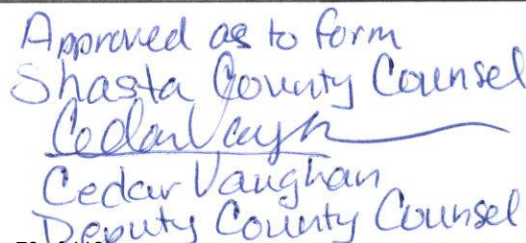 Approved as to form
Shasta County Counsel
Cedar Vaughan
Deputy County Counsel